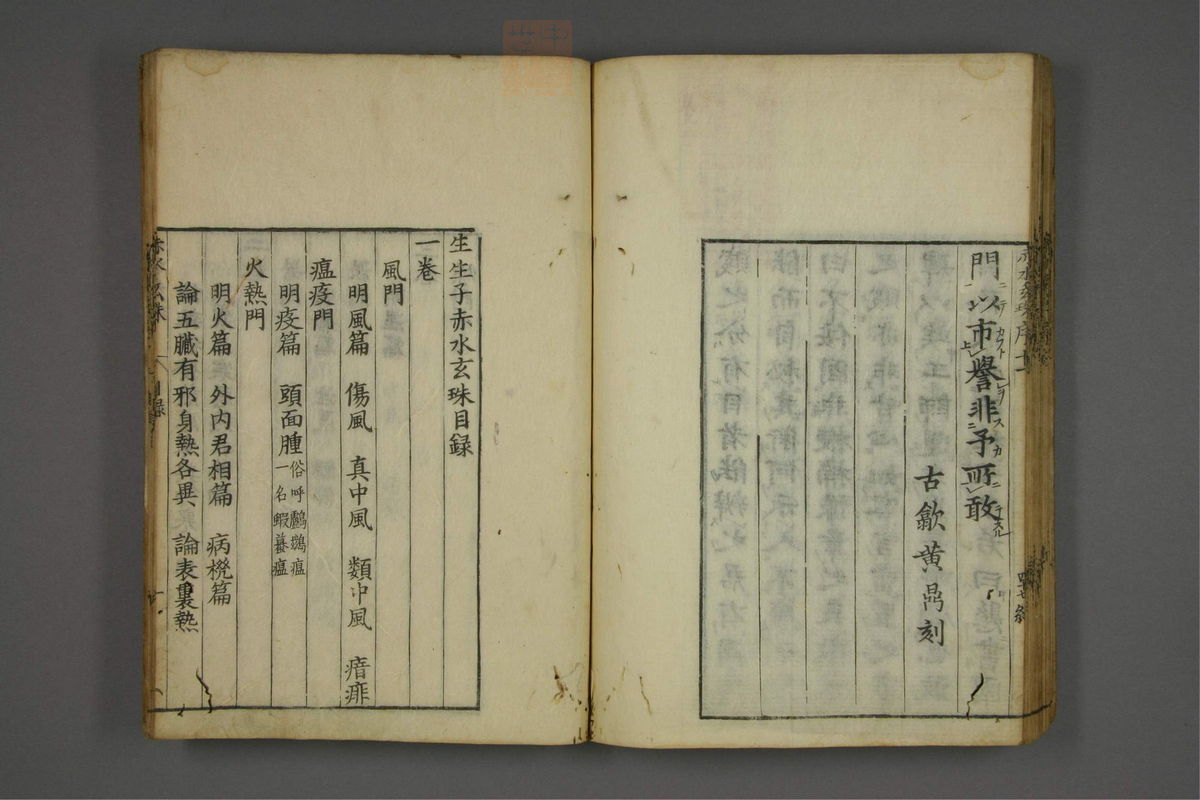 門以市譽非予所敢
古歙黄鼎刻
生生子赤水玄珠目録
一卷
風門
明風篇　傷風　真中風　類中風　瘖痱
瘟疫門
明疫篇　頭面腫
俗呼鸕鷀瘟
一名蝦蟇瘟
火熱門
明火篇　外内君相篇　病機篇
論五臟有邪身熱各異　論表裏熱
赤水玄珠
目録